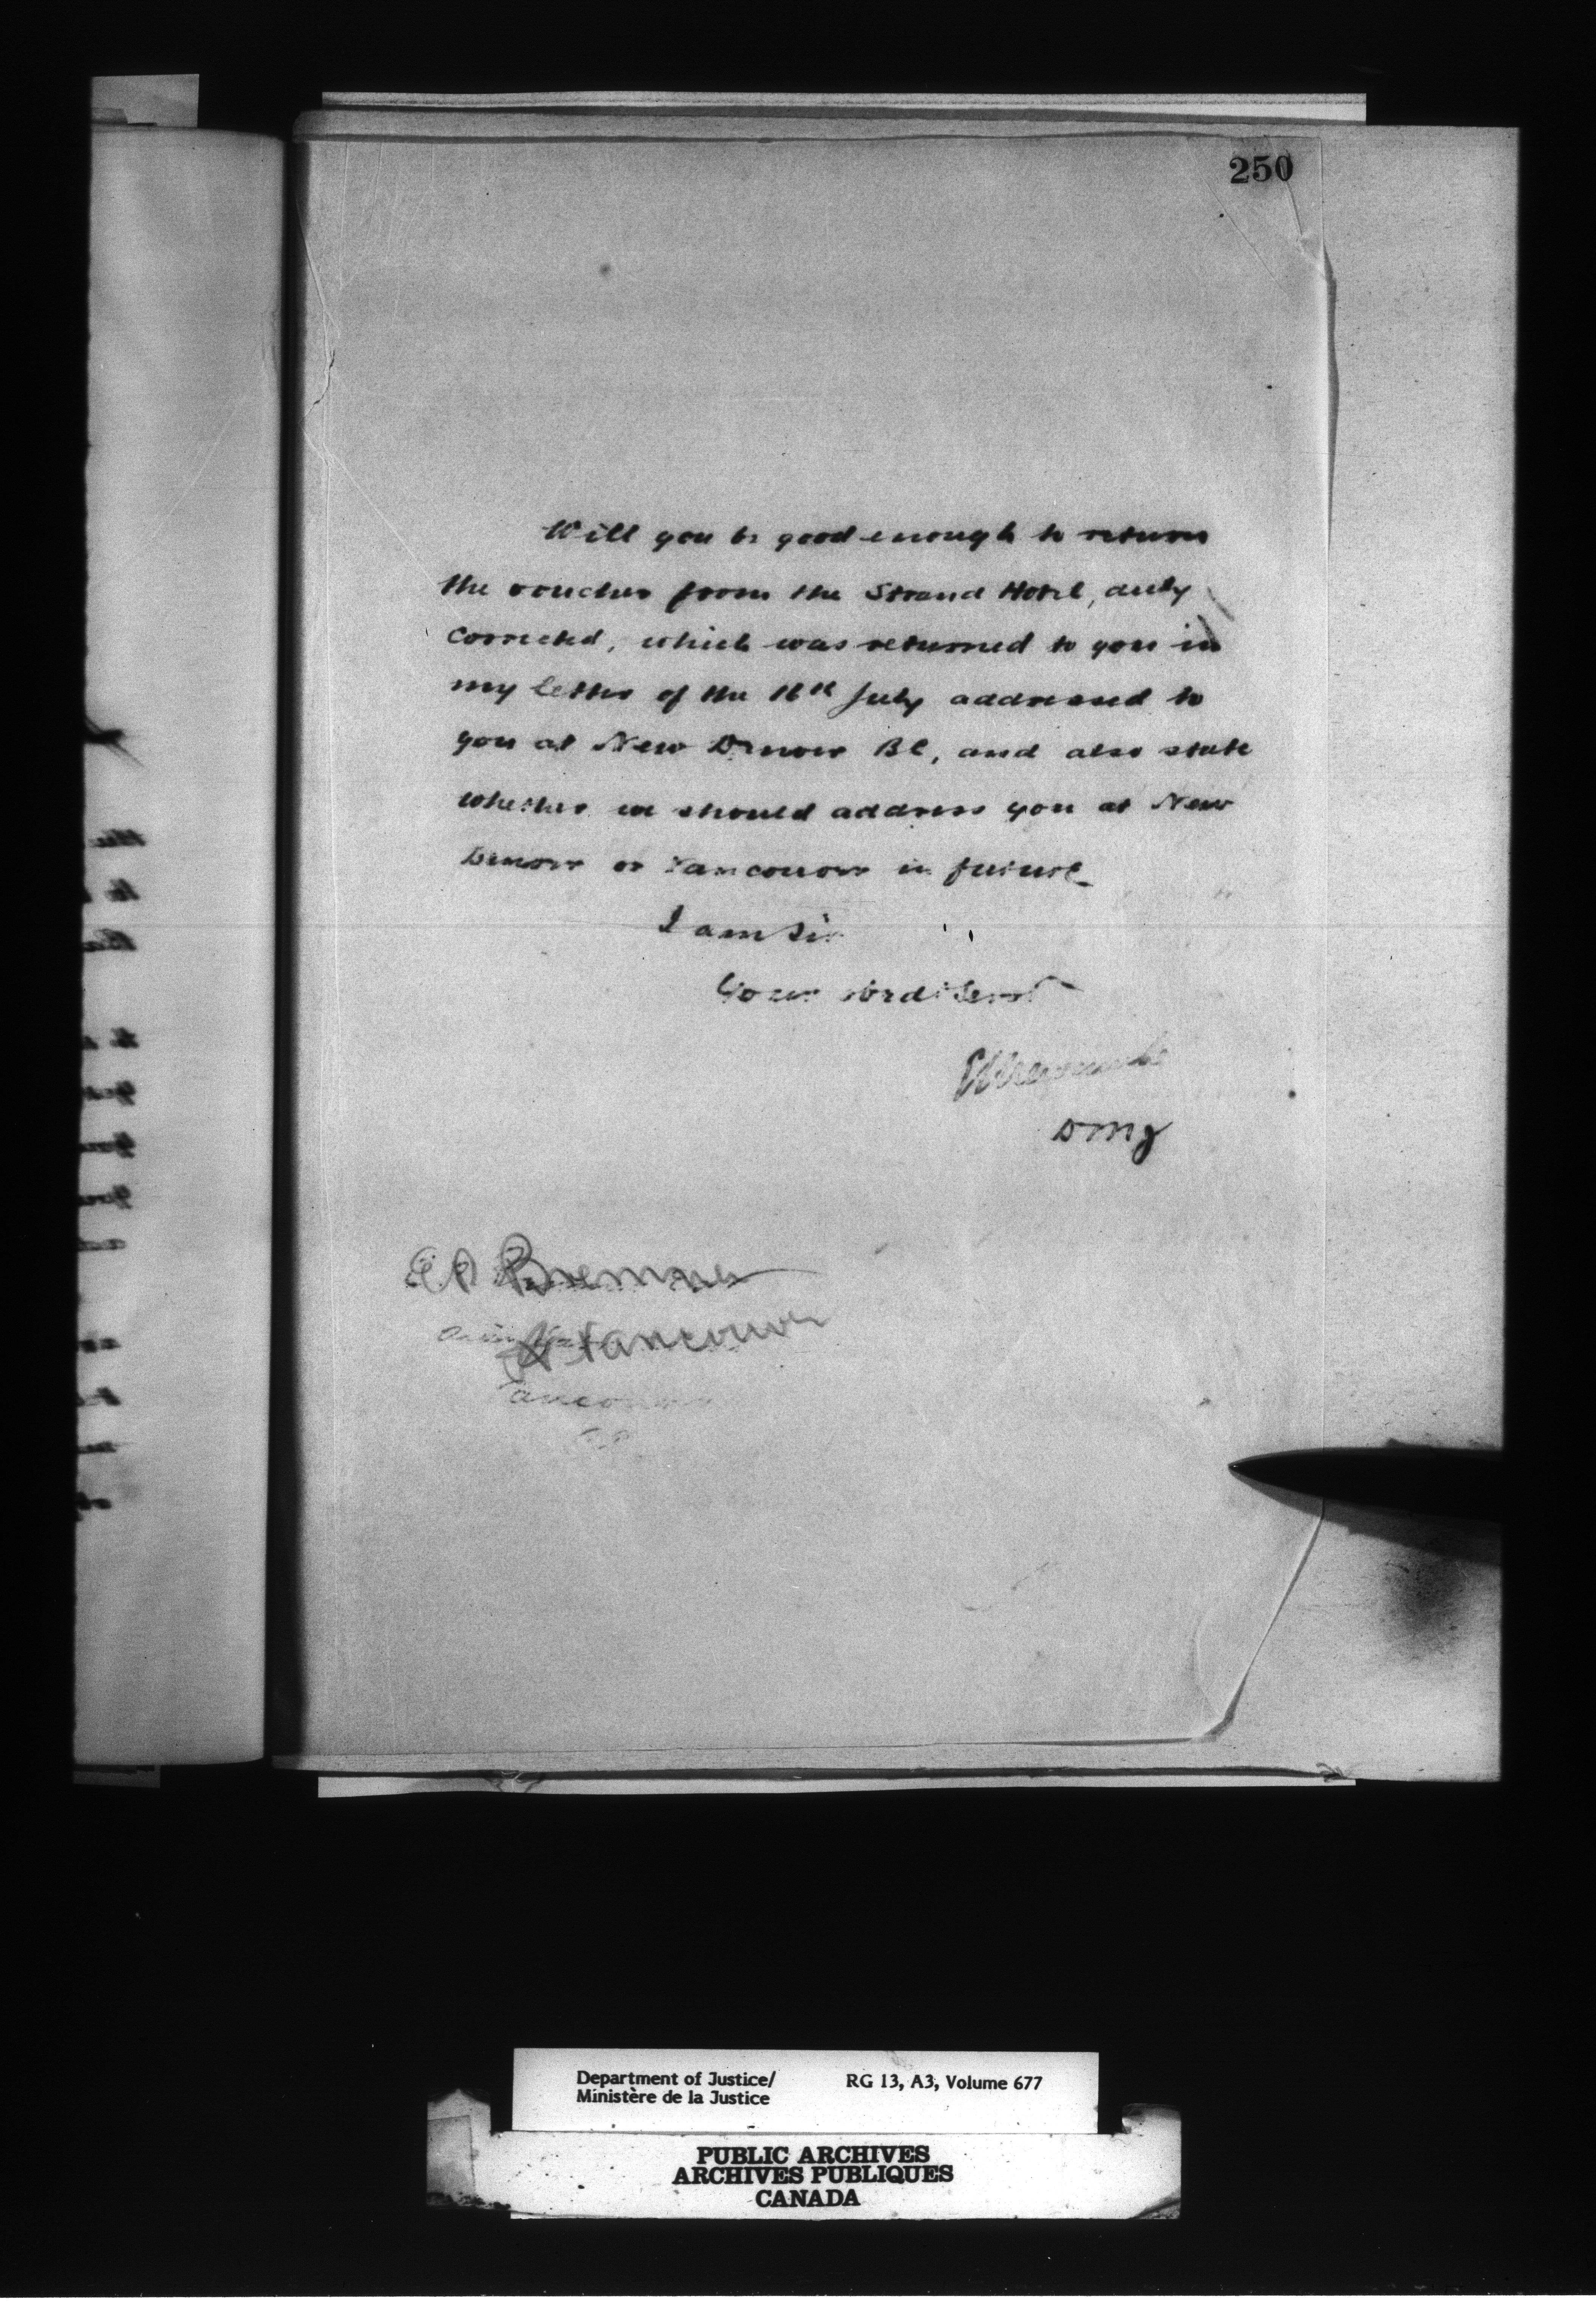 250
Will you be good enough to return
the voucher from the Strand Hotel, duly
corrected, which was returned to you in
my letter of the 16th July addressed to
you at New Denver BC, and also state
whether we should address you at New
Denver or Vancouver in future
I am Sir
Your obedt Servt
ELNewcombe
DMJ
E.A Bremner
Vancouver
Vancouver
Department of Justice/
Ministère de la Justice
RG 13, A3, Volume 677
PUBLIC ARCHIVES
ARCHIVES PUBLIQUES
CANADA